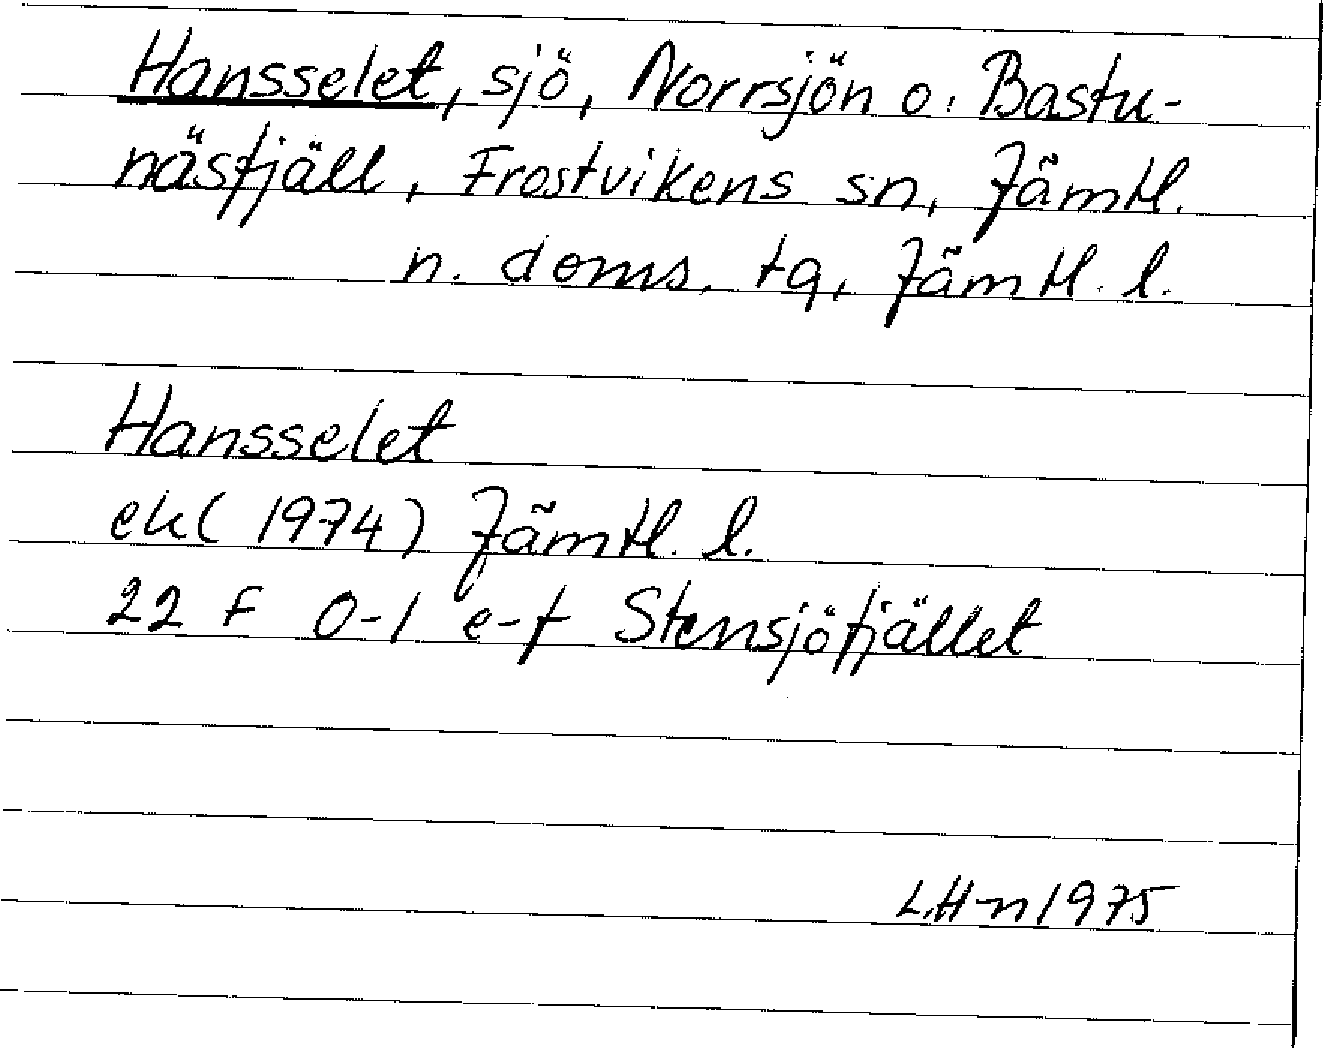 Hansselet, sjö, Norrsjön o. Bastu-
näsfjäll, Frostvikens sn, Jämtl.
n. doms. tg, Jämtl. l.
Hansselet
ek (1974) Jämtl. l.
22 F 0-1 e-f Stensjöfjället
L.H-n 1975